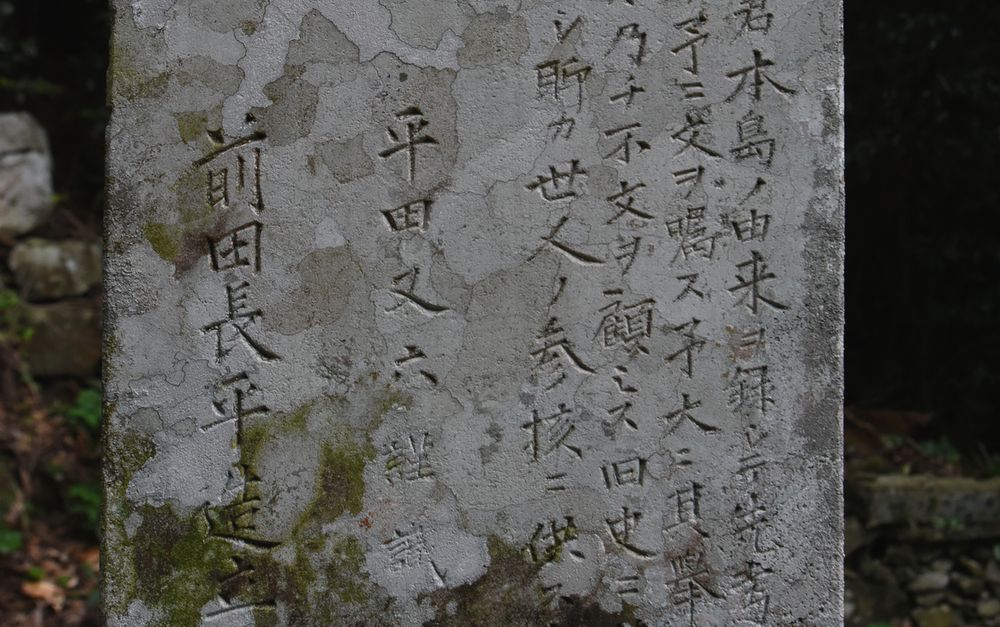 君本島ノ由来ヲ録シテ先考
ニ文ヲ嘱ス予大ニ其挙
乃チ不文ヲ顧ミス旧史ニ
シ聊カ世人ノ参核ニ供ス
平田又六謹識
前田長平造立